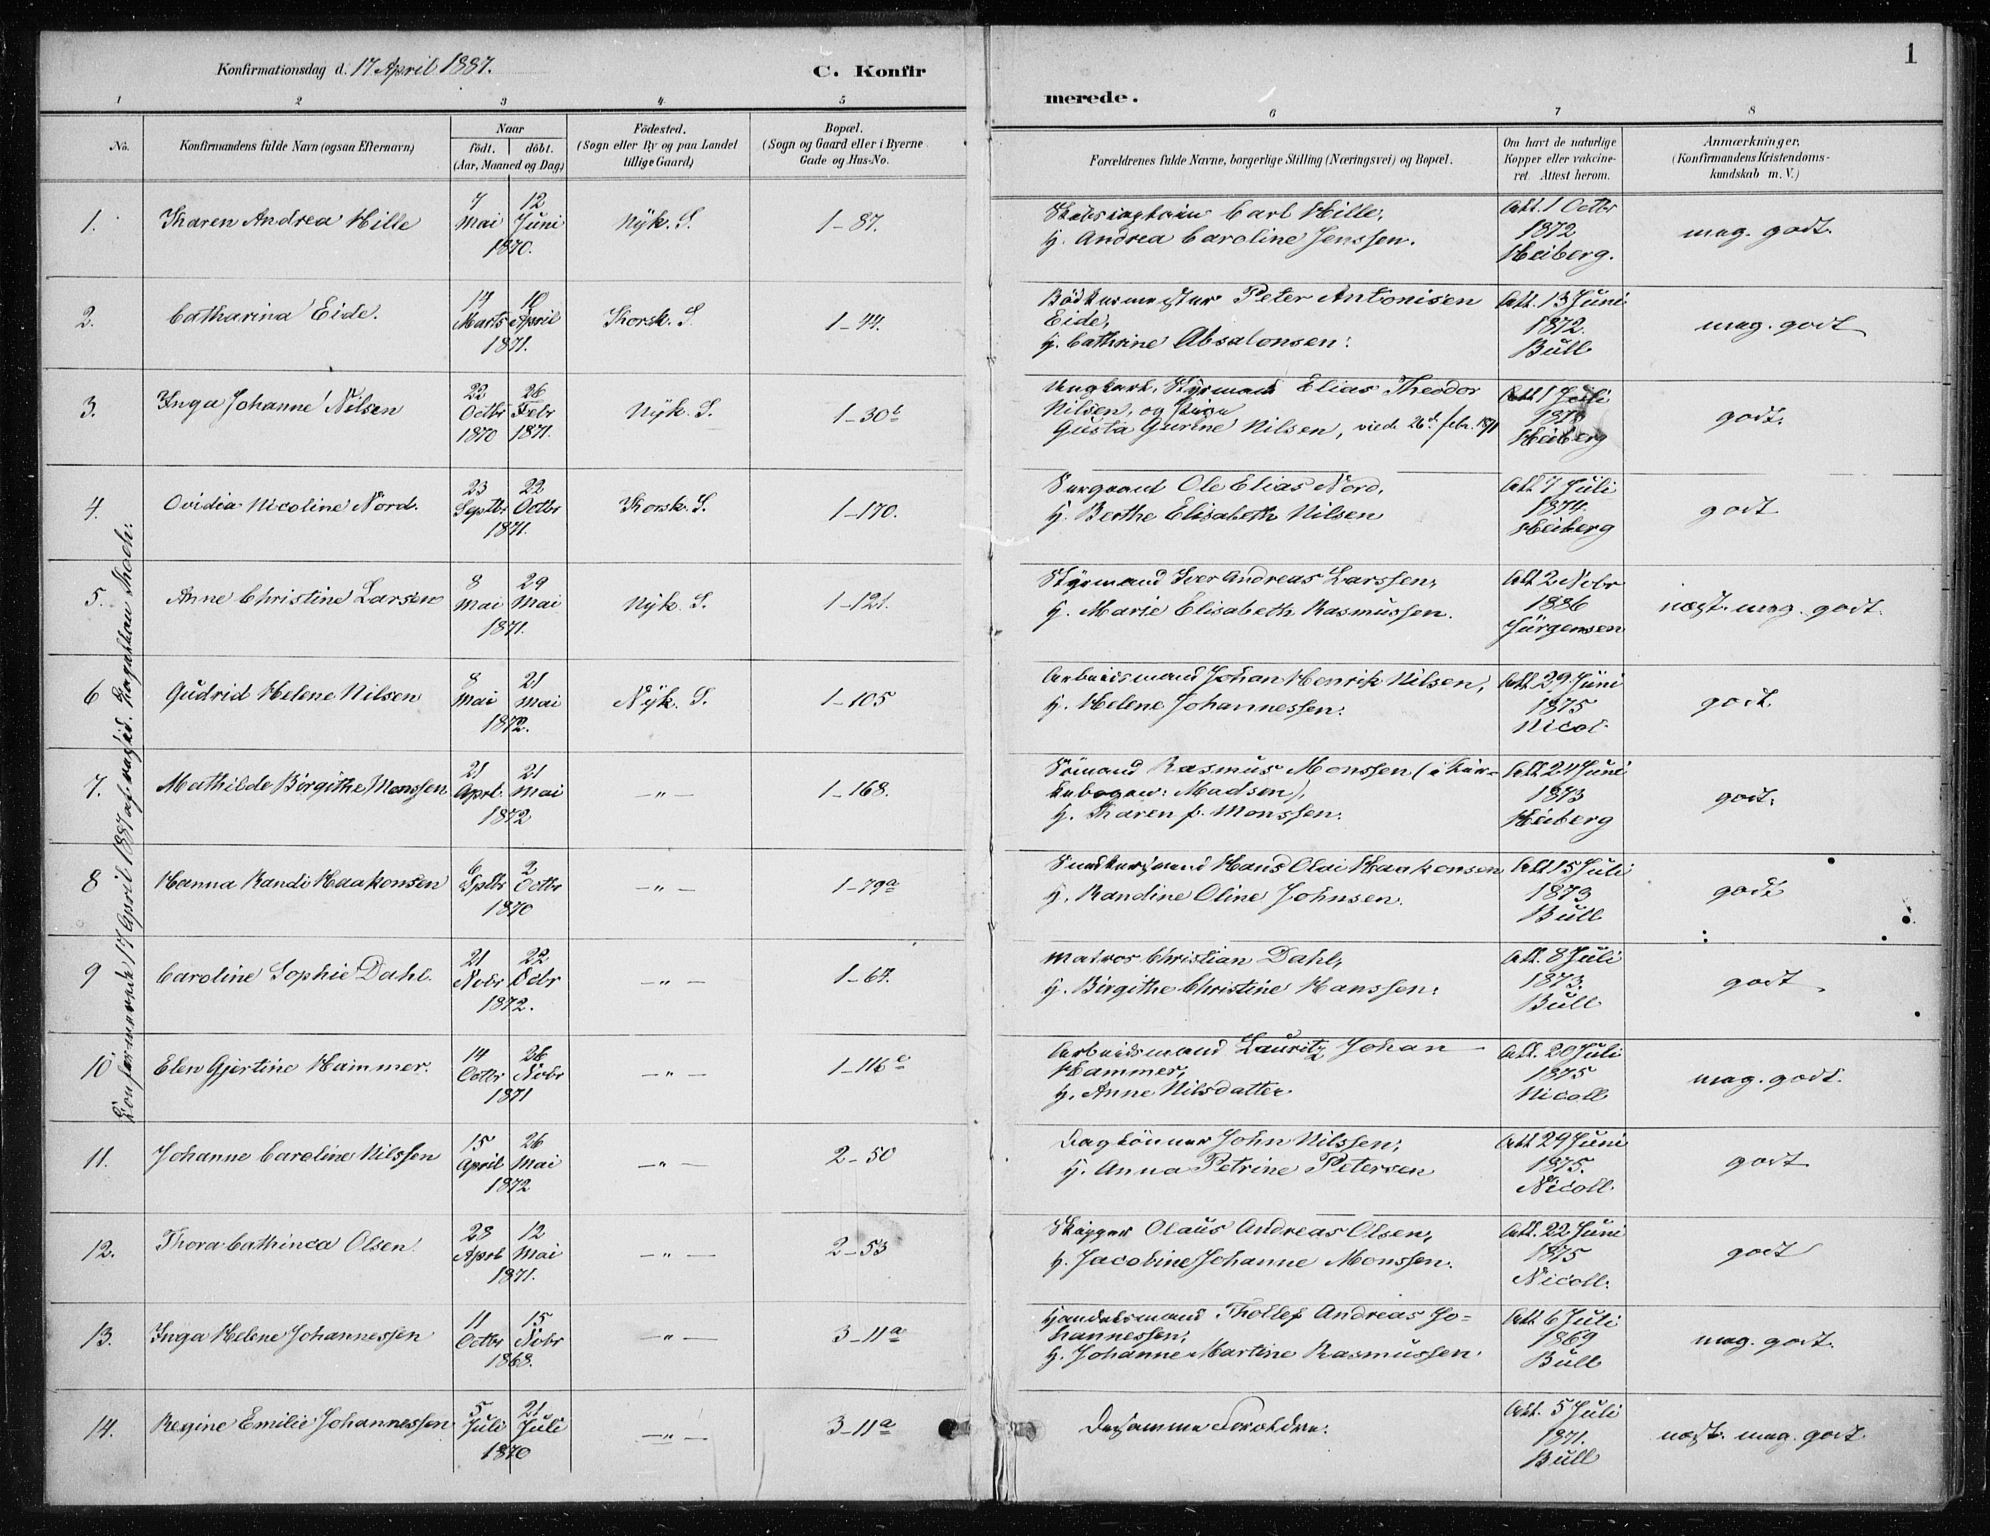 1
Konfirmationsdag d. 17 April 1887.
C. Konfirmerede.
1 2 3 4 5 6 7 8
No.
Konfirmandens fulde Navn (ogsaa Efternavn)
Naar
födt. döbt.
(Aar, Maaned og Dag)
Födested.
(Sogn eller By og paa Landet
tillige Gaard)
Bopæl.
(Sogn og Gaard eller i Byerne
Gade og Hus-No.
Forældrenes fulde Navne, borgerlige Stilling (Næringsvei) og Bopæl.
Om havt de naturlige
Kopper eller vakcine-
ret. Attest herom.
Anmærkninger.
(Konfirmandens Kristendoms-
kundskab m. V.)
Konfirmerede 17 April 1887 af resid. Kapellan
1. Tharen Andrea Hille
7 Mai 12 Juni 1870.
Nÿk. S.
1-87.
Carl Hille,
H. Andrea Caroline Jenssen.
Att. 1 Octbr
1872
Heiberg.
meg. godt.
2. Catharina Eide.
17 Marts 10 April 1871.
Korsk. S.
1-44.
Bödkermester Peter Antonisen
Eide,
H. Cathrine Absalonsen.
Att. 13 Juni
1872.
Bull
meg. godt
3. Inga Johanne Nilsen
22 Octbr 1870 26 Febr 1871.
Nÿk. S.
1-30b
Ungkarl, Styrmand Elias Theodor
Nilsen, og Pige
Gusta Gurine Nilsen, viede 26d febr. 1871
Att 1 Juli
Heiberg
godt.
4. Ovidia Nicoline Nord.
23 Septbr 22 Octbr 1871.
Korsk. S.
1-170.
Sergeant Ole Elias Nord,
H. Berthe Elisabeth Nilsen
Att 7 Juli
1874.
Heiberg
godt
5. Anne Christine Larsen
8 Mai 29 Mai 1871.
Nÿk. S.
1-121.
Styrmand Iver Andreas Larssen,
H. Marie Elisabeth Rasmussen.
Att 2 Nobr
1886
Jürgensen
næst. meg. godt.
6 Gudrid Helene Nilsen
8 Mai 21 Mai 1872.
Nÿk. S.
1-105
Arbeidsmand Johan Henrik Nilsen,
H. Helene Johannessen.
Att. 29 Juni
1875
Nicol
godt
7. Mathilde Birgithe Monssen
21 Aprl. 21 Mai 1872
—„—
1-168.
Sömand Rasmus Monssen (i Kir-
kebogen: Madsen),
H. Tharen f. Monssen.
Att 24 Juni
1873
Heiberg
godt.
8 Hanna Randi Haakonsen
6 Sptbr 2 Octbr 1870
—„—
1-79a
Snedkersvend Hans Olai Haakonsen
H. Randine Oline Johnsen.
Att 15 Juli
1873
Bull
godt
9 Caroline Sophie Dahl.
21 Nobr 22 Dcbr 1872.
—„—
1-67.
Matros Christian Dahl,
H. Birgithe Christine Hanssen.
Att. 8 Juli
1873.
Bull
godt
10 Elen Gjertine Hammer.
14 Octbr 26 Nobr 1871
—„—
1-116c
Arbeidsmand Lauritz Johan
Hammer,
H. Anne Nilsdatter
Att. 20 Juli
1875
Nicoll
meg. godt.
11. Johanne Caroline Nilssen
15 April 26 Mai 1872
—„—
2-50
Daglönner John Nilssen,
H. Anna Petrine Petersen
Att 29 Juni
1875.
Nicoll.
godt
12. Thora Cathinca Olsen
28 Aprl 12 Mai 1871.
—„—
2-53
Skipper Olaus Andreas Olsen,
H. Jacobine Johanne Monssen.
Att. 22 Juni
1875
Nicoll.
godt
13. Inga Helene Johannessen
11 Octbr 15 Nobr 1868.
—„—
3-11a
Handelsmand Thollef Andreas Jo-
hannessen,
H. Johanne Martine Rasmussen.
Att 6 Juli
1869
Bull
meg. godt.
14. Regine Emilie Johannessen
5 Juli 21 Juli 1870
—„—
3-11a
Desamme Forældre.
Att. 5 Juli
1871.
Bull
næst. meg. godt